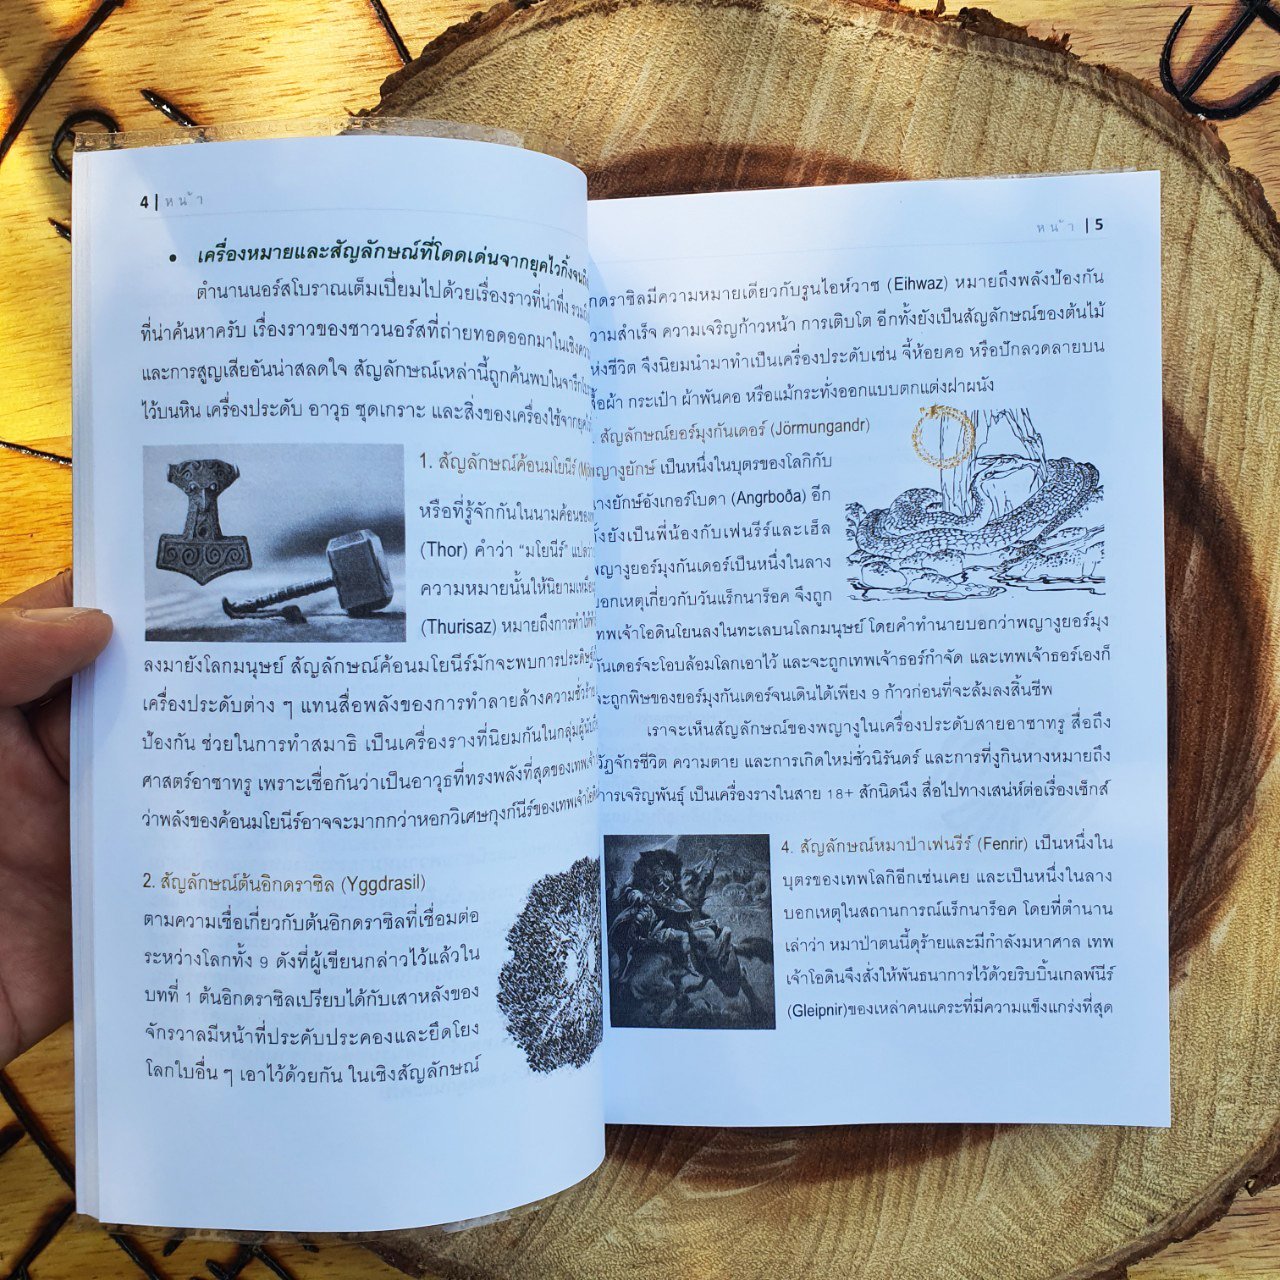 4 | หน้า
• เครื่องหมายและสัญลักษณ์ที่โดดเด่นจากยุคไวกิ้งจนถึง
ตำนานนอร์สโบราณเต็มเปี่ยมไปด้วยเรื่องราวที่น่าทึ่ง รวมถึง
ที่น่าค้นหาครับ เรื่องราวของชาวนอร์สที่ถ่ายทอดออกมาในเชิง
และการสูญเสียอันน่าสลดใจ สัญลักษณ์เหล่านี้ถูกค้นพบในจารึก
ไว้บนหิน เครื่องประดับ อาวุธ ชุดเกราะ และสิ่งของเครื่องใช้จากยุค
1. สัญลักษณ์ค้อนมโยนีร์
หรือที่รู้จักกันในนามค้อนของ
(Thor) คำว่า “มโยนีร์”
ความหมายนั้นให้นิยามเหมือน
(Thurisaz) หมายถึงการทำให้
ลงมายังโลกมนุษย์ สัญลักษณ์ค้อนมโยนีร์มักจะพบการประดิษฐ์
เครื่องประดับต่าง ๆ แทนสื่อพลังของการทำลายล้างความชั่วร้าย
ป้องกัน ช่วยในการทำสมาธิ เป็นเครื่องรางที่นิยมกันในกลุ่มผู้
ศาสตร์อาซาทรู เพราะเชื่อกันว่าเป็นอาวุธที่ทรงพลังที่สุดของเทพเจ้า
ว่าพลังของค้อนมโยนีร์อาจจะมากกว่าหอกวิเศษกุงก์นีร์ของเทพเจ้า
2. สัญลักษณ์ต้นอิกดราซิล (Yggdrasil)
ตามความเชื่อเกี่ยวกับต้นอิกดราซิลที่เชื่อมต่อ
ระหว่างโลกทั้ง 9 ดังที่ผู้เขียนกล่าวไว้แล้วใน
บทที่ 1 ต้นอิกดราซิลเปรียบได้กับเสาหลังของ
จักรวาลมีหน้าที่ประคับประคองและยึดโยง
โลกใบอื่น ๆ เอาไว้ด้วยกัน ในเชิงสัญลักษณ์
หน้า | 5
กดราซิลมีความหมายเดียวกับรูนไอห์วาซ (Eihwaz) หมายถึงพลังป้องกัน
วามสำเร็จ ความเจริญก้าวหน้า การเติบโต อีกทั้งยังเป็นสัญลักษณ์ของต้นไม้
ห่งชีวิต จึงนิยมนำมาทำเป็นเครื่องประดับเช่น จี้ห้อยคอ หรือปักลวดลายบน
สื้อผ้า กระเป๋า ผ้าพันคอ หรือแม้กระทั่งออกแบบตกแต่งฝาผนัง
. สัญลักษณ์ยอร์มุงกันเดอร์ (Jörmungandr)
พญางูยักษ์ เป็นหนึ่งในบุตรของโลกิกับ
างยักษ์อังเกอร์โบดา (Angrboða) อีก
ั้งยังเป็นพี่น้องกับเฟนรีร์และเฮ็ล
พญางูยอร์มุงกันเดอร์เป็นหนึ่งในลาง
บอกเหตุเกี่ยวกับวันแร็กนาร็อค จึงถูก
ทพเจ้าโอดินโยนลงในทะเลบนโลกมนุษย์ โดยคำทำนายบอกว่าพญางูยอร์มุง
ันเดอร์จะโอบล้อมโลกเอาไว้ และจะถูกเทพเจ้าธอร์กำจัด และเทพเจ้าธอร์เองก็
จะถูกพิษของยอร์มุงกันเดอร์จนเดินได้เพียง 9 ก้าวก่อนที่จะล้มลงสิ้นชีพ
เราจะเห็นสัญลักษณ์ของพญางูในเครื่องประดับสายอาซาทรู สื่อถึง
วัฏจักรชีวิต ความตาย และการเกิดใหม่ชั่วนิรันดร์ และการที่งูกินหางหมายถึง
การเจริญพันธุ์ เป็นเครื่องรางในสาย 18+ สักนิดนึง สื่อไปทางเสน่ห์ต่อเรื่องเซ็กส์
4. สัญลักษณ์หมาป่าเฟนรีร์ (Fenrir) เป็นหนึ่งใน
บุตรของเทพโลกิอีกเช่นเคย และเป็นหนึ่งในลาง
บอกเหตุในสถานการณ์แร็กนาร็อค โดยที่ตำนาน
เล่าว่า หมาป่าตนนี้ดุร้ายและมีกำลังมหาศาล เทพ
เจ้าโอดินจึงสั่งให้พันธนาการไว้ด้วยริบบิ้นเกลฟนีร์
(Gleipnir)ของเหล่าคนแคระที่มีความแข็งแกร่งที่สุด